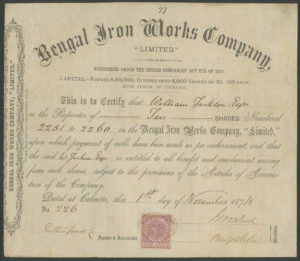 77
Bengal Iron Works Company,
"LIMITED."
REGISTERED UNDER THE INDIAN COMPANIES' ACT XIX OF 1857.
CAPITAL—RUPEES
WITH POWER TO INCREASE.
This is to Certify that William Jackson Esqr
is the Proprietor of Ten SHARES Numbered
2251 to 2260 on the Bengal Iron Works Company, "Limited,"
upon which payment of calls have been made as per endorsement, and that
the said W. Jackson Esqr. is entitled to all benefit and emolument arising
from such shares, subject to the provisions of the Articles of Association
of the Company.
Dated at Calcutta, this 1st day of November 1874
No. 226
Agents & Secretaries.
ONE ANNA
BENGAL IRON WORKS COMPANY, "LIMITED."